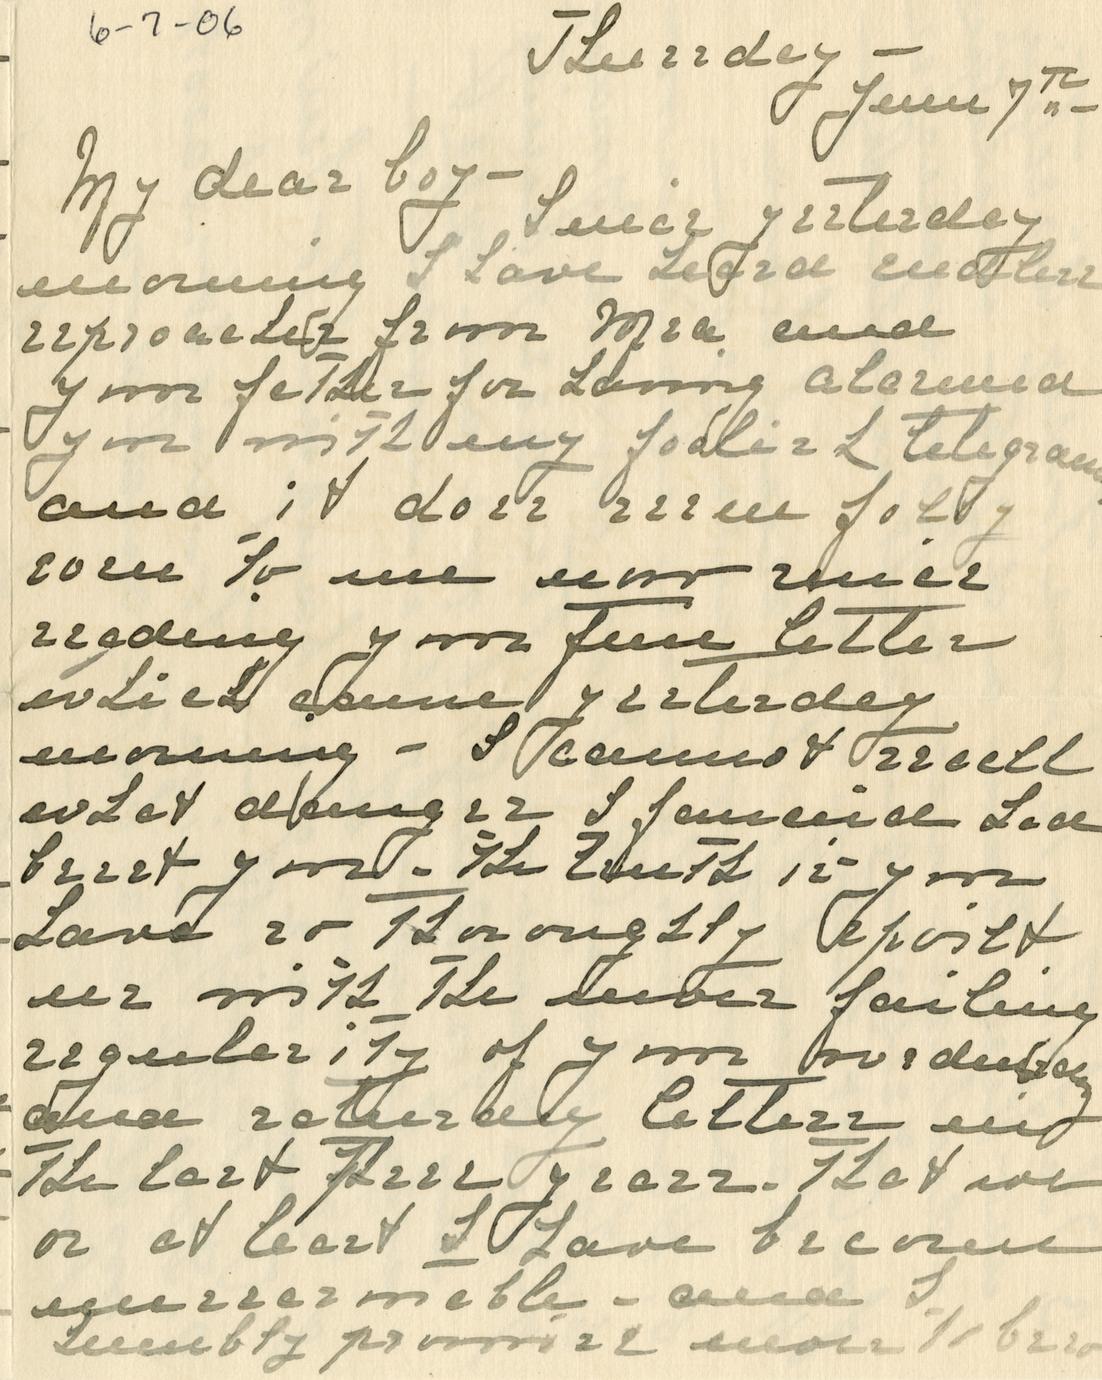 6-7-06
Thursday –
June 7th –
My dear boy –
Since yesterday
morning I have heard endless
reproaches from Mea and
your father for having alarmed
you with my foolish telegram
and it does seem folly
even to me now since
reading your fine letter
which came yesterday
morning – I cannot recall
what dangers I fancied had
beset you. – The truth is you
have so thoroughly spoilt
me with the never failing
regularity of your wednesday
and saturday letters in
the last three years. That we
or at least I have become
unreasonable – and I
humbly promise never to be so